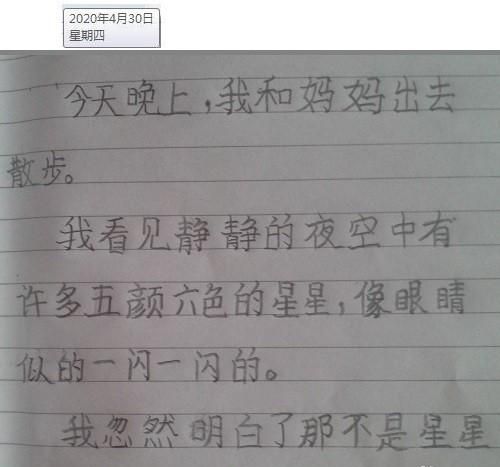 2020年4月30日
星期四
今天晚上，我和妈妈出去
散步。
我看见静静的夜空中有
许多五颜六色的星星，像眼睛
似的一闪一闪的。
我忽然明白了那不是星星